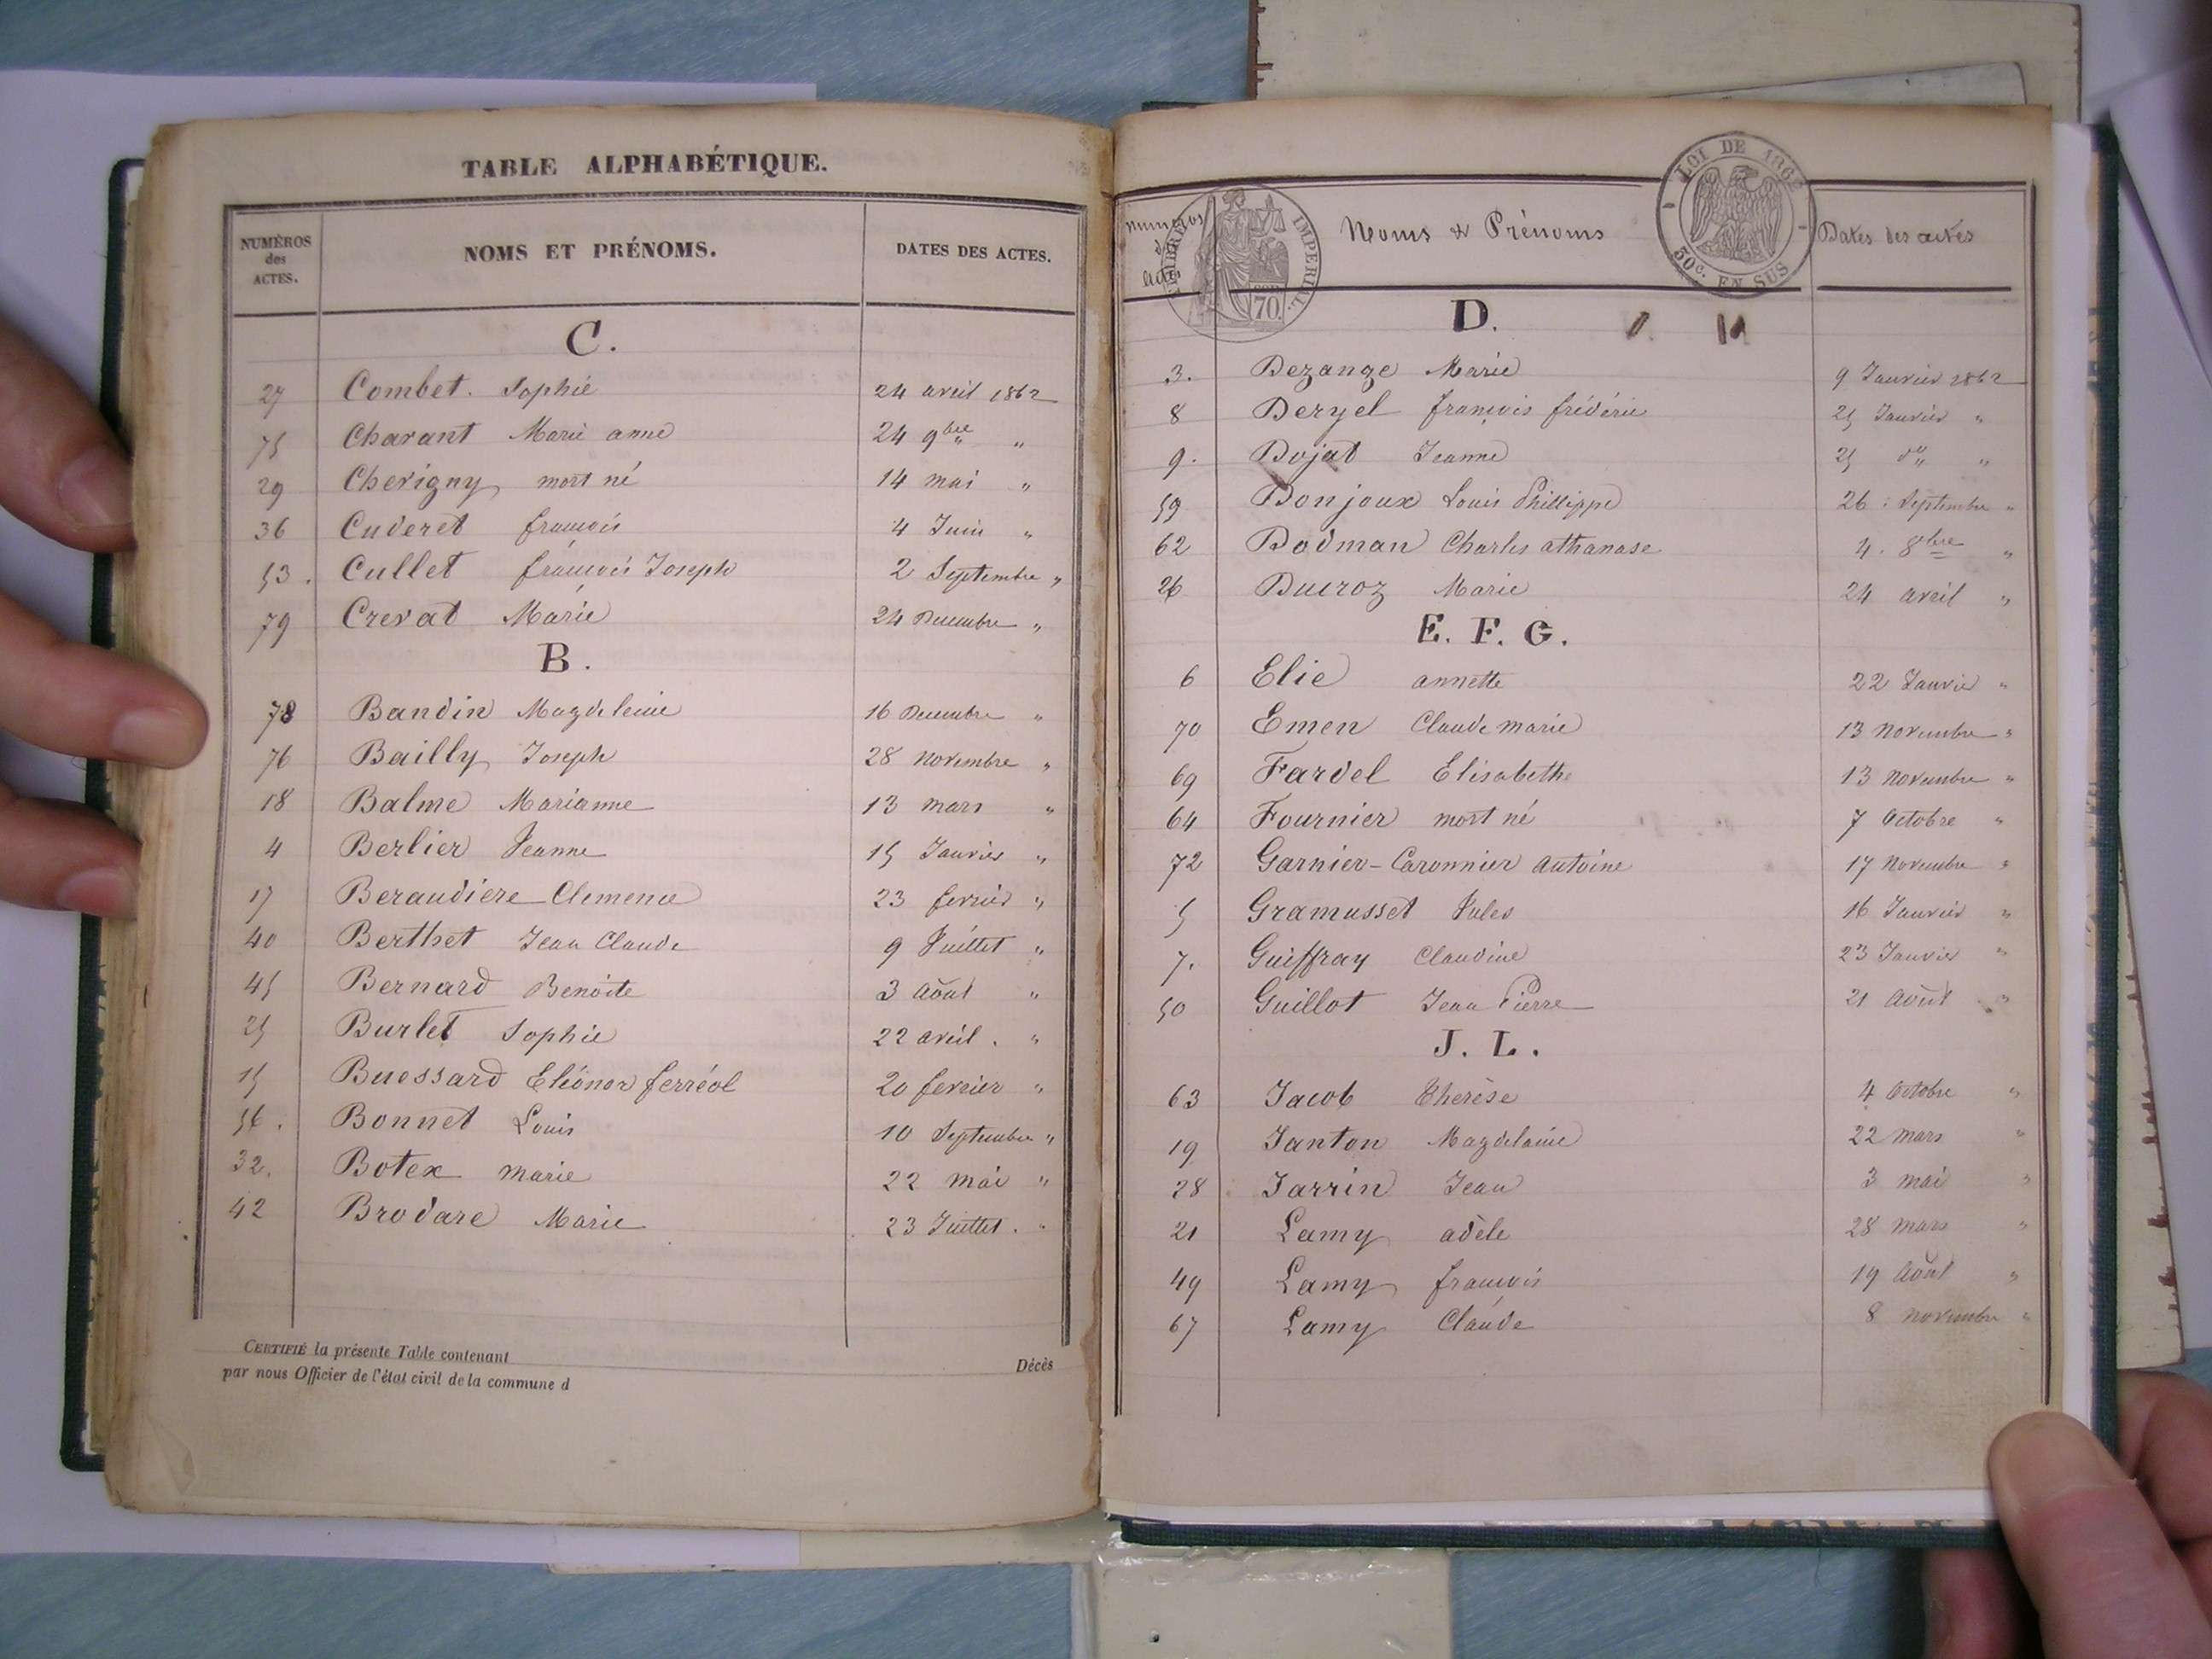 TABLE ALPHABÉTIQUE.
NUMÉROS des ACTES. NOMS ET PRÉNOMS. DATES DES ACTES.
C.
27 Combet. Sophie 24 avril 1862
75 Charant Marie anne 24 9bre "
29 Cherigny mort né 14 mai "
36 Cuderet françois 4 Juin "
53. Cullet françois Joseph 2 Septembre "
79 Crevat Marie 24 Decembre "
B.
78 Bandin Magdeleine 16 Decembre "
76 Bailly Joseph 28 novembre "
18 Balme Marianne 13 mars "
4 Berlier Jeanne 15 Janvier "
17 Beraudiere Clemence 23 fevrier "
40 Berthet Jean Claude 9 Juillet "
45 Bernard Benoite 3 Août "
25 Burlet Sophie 22 avril. "
15 Buessard Eléonor ferréol 20 fevrier "
56. Bonnet Louis 10 Septembre "
32. Botex marie 22 mai "
42 Brodare Marie 23 Juillet. "
CERTIFIÉ la présente Table contenant Décès
par nous Officier de l'état civil de la commune d
LOI DE 1862
50c. EN SUS
TIMBRE IMPERIAL
70.
Numéros des actes Noms & Prénoms Dates des actes
D.
3. Dezange Marie 9 Janvier 1862
8 Deryel françois frédéric 25 Janvier "
9. Dojat Jeanne 25 do "
59 Donjoux Louis Phillippe 26 Septembre "
62 Dodman Charles athanase 4. 8bre "
26 Ducroz Marie 24 avril "
E. F. G.
6 Elie annette 22 Janvier "
70 Emen Claude marie 13 Novembre "
69 Fardel Elisabethe 13 Novembre "
64 Fournier mort né 7 Octobre "
72 Garnier-Caronnier antoine 17 Novembre "
5 Gramusset Jules 16 Janvier "
7. Guiffray Claudine 23 Janvier "
50 Guillot Jean Pierre 21 Août "
J. L.
63 Jacob Thérèse 4 Octobre "
19 Janton Magdelaine 22 mars "
28 Jarrin Jean 3 mai "
21 Lamy adèle 28 mars "
49 Lamy françois 19 Août "
67 Lamy Claude 8 novembre "